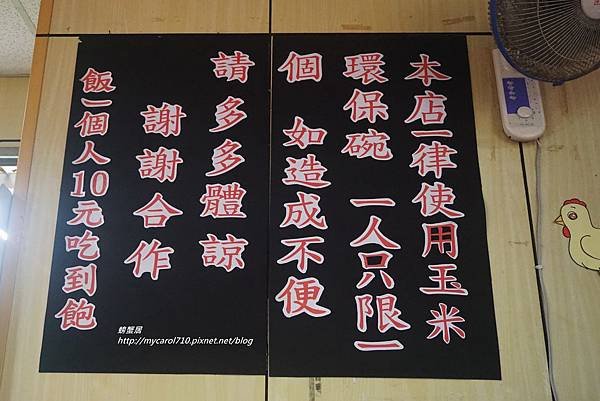 本店一律使用玉米
環保碗 一人只限一
個 如造成不便
請多多體諒
謝謝合作
飯一個人10元吃到飽
螃蟹居
http://mycarol710.pixnet.net/blog